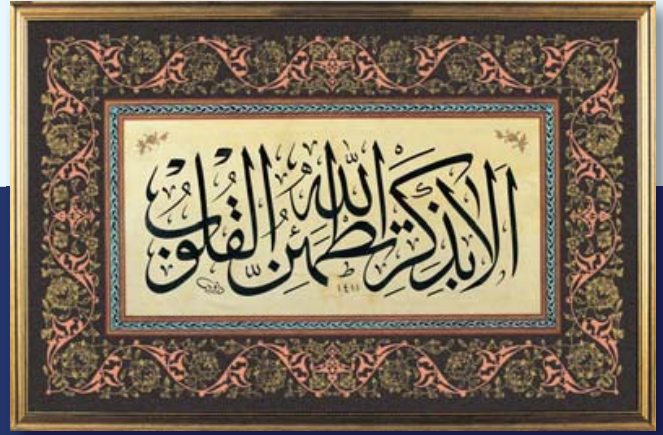 أَلَا بِذِكْرِ اللّٰهِ تَطْمَئِنُّ الْقُلُوبُ
١٤١١